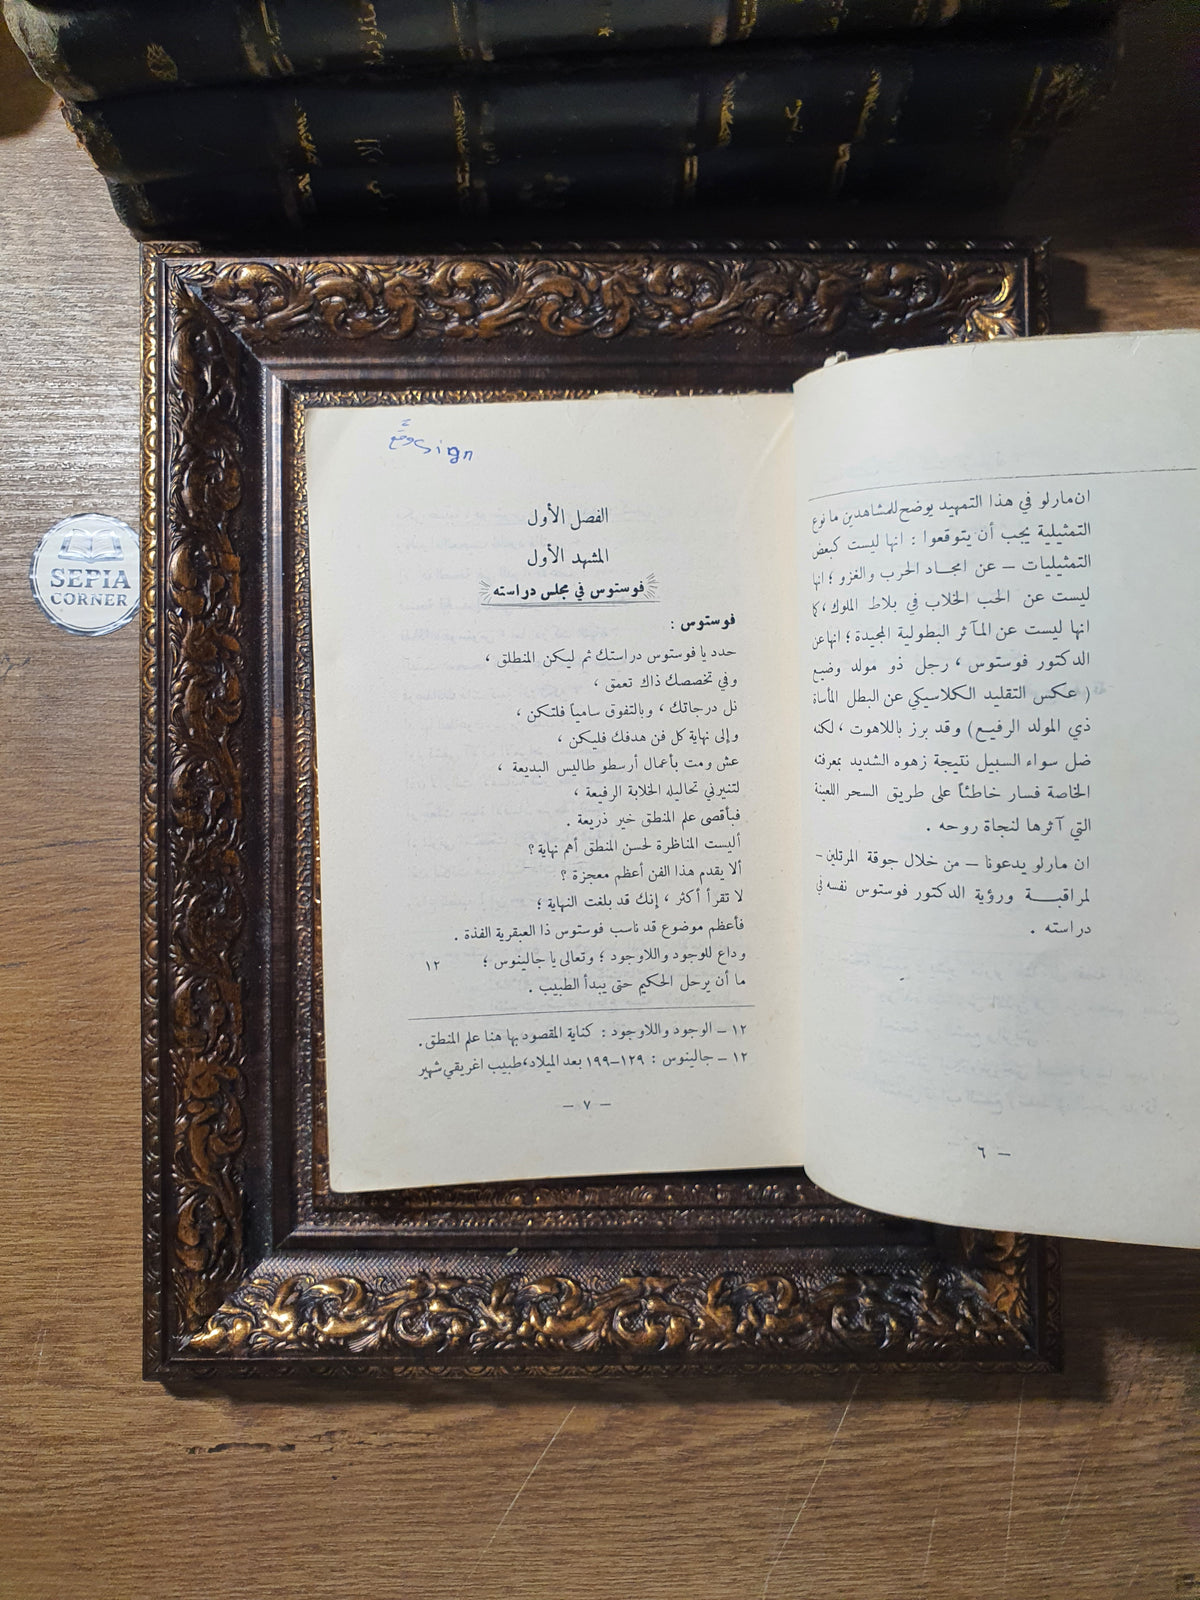 ان مارلو في هذا التمهيد يوضح للمشاهدين ما نوع
التمثيلية يجب أن يتوقعوا : انها ليست كبعض
التمثيليات – عن امجاد الحرب والغزو ؛ انها
ليست عن الحب الخلاب في بلاط الملوك ، كما
انها ليست عن المآثر البطولية المجيدة ؛ انها عن
الدكتور فوستوس ، رجل ذو مولد وضيع
( عكس التقليد الكلاسيكي عن البطل المأساة
ذي المولد الرفيع) وقد برز باللاهوت ، لكنه
ضل سواء السبيل نتيجة زهوه الشديد بمعرفته
الخاصة فسار خاطئاً على طريق السحر اللعينة
التي آثرها لنجاة روحه .
ان مارلو يدعونا – من خلال جوقة المرتلين –
لمراقبة ورؤية الدكتور فوستوس نفسه في
دراسته .
– ٦
وقع sign
الفصل الأول
المشهد الأول
فوستوس في مجلس دراسته
فوستوس :
حدد يا فوستوس دراستك ثم ليكن المنطلق ،
وفي تخصصك ذاك تعمق ،
نل درجاتك ، وبالتفوق سامياً فلتكن ،
وإلى نهاية كل فن هدفك فليكن ،
عش ومت بأعمال أرسطو طاليس البديعة ،
لتنيرني تحاليله الخلابة الرفيعة ،
فبأقصى علم المنطق خير ذريعة .
أليست المناظرة لحسن المنطق أهم نهاية ؟
ألا يقدم هذا الفن أعظم معجزة ؟
لا تقرأ أكثر ، إنك قد بلغت النهاية ؛
فأعظم موضوع قد ناسب فوستوس ذا العبقرية الفذة .
وداع للوجود واللاوجود ؛ وتعالى يا جالينوس ؛ ١٢
ما أن يرحل الحكيم حتى يبدأ الطبيب .
١٢ – الوجود واللاوجود : كناية المقصود بها هنا علم المنطق .
١٢ – جالينوس : ١٢٩–١٩٩ بعد الميلاد، طبيب اغريقي شهير
– ٧ –
SEPIA
CORNER